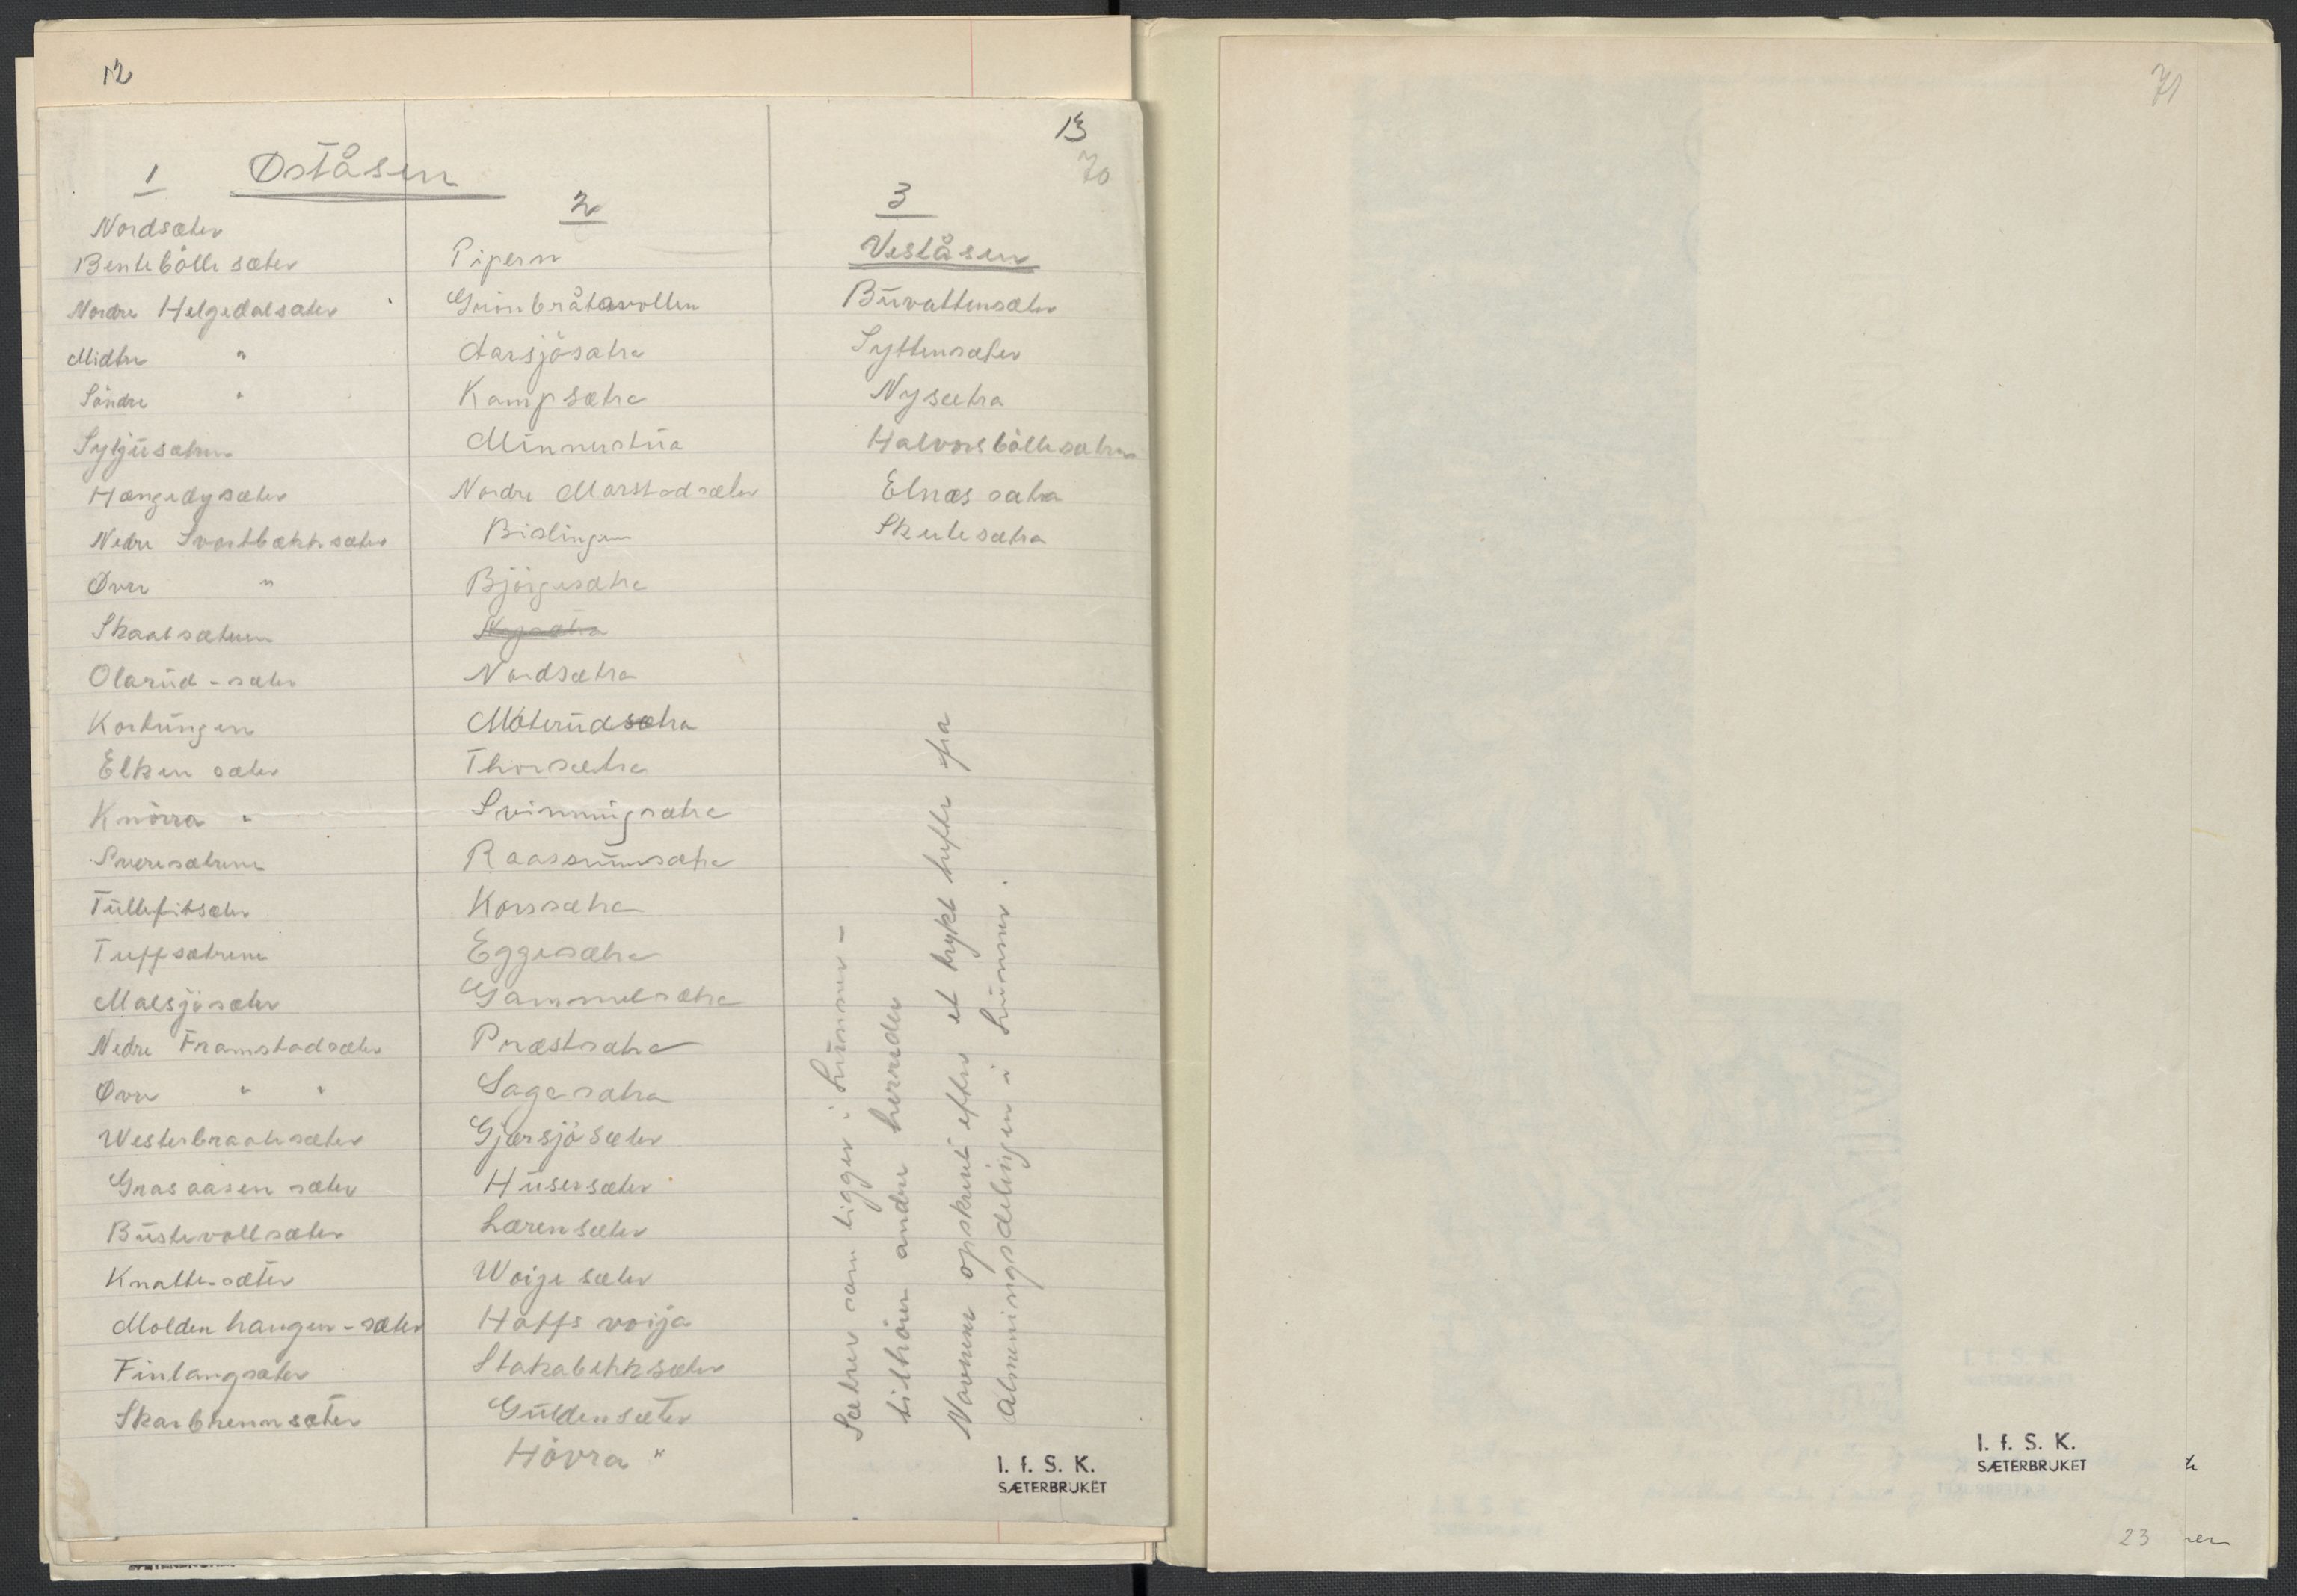 12
13
70
1 Øståsen
Nordsæter
Bentebölle sæter
Nordre Helgedalsæter
Midtre "
Söndre "
Syljusætren
Hængedysæter
Nedre Svartbækksæter
Øvre "
Skaalsæteren
Olarud - sæter
Kortungen
Elken sæter
Knörra "
Sveresætrene
Tullefitsæter
Tuffsætrene
Malsjösæter
Nedre Framstadsæter
Øvre " "
Westerbraatesæter
Grasaasen sæter
Bustevollsæter
Knatten-sæter
Moldenhaugen - sæter
Finlangsæter
Skarbrennsæter
2
Pipern
Grimbråtavollen
Aarsjösætra
Kampsætra
Minnurstua
Nordre Morstadsæter
Bislingen
Björgesætra
Nysætra
Nordsætra
Móterudsætra
Thorsætra
Svinningsætra
Raassumsætra
Korssætra
Eggesætra
Gammelsætra
Præstsætra
Sagesætra
Gjærsjösæter
Husersæter
Lærensæter
Woigesæter
Hoffs voija
Stakabekksæter
Guldensæter
Hövra "
3
Veståsen
Buvattensæter
Syttensæter
Nysætra
Halvorsböllesætren
Elnæs sætra
Skutesætra
Sætrer som ligger i Lunner -
tilhörer andre herreder
Navnene opskrevet efter et trykt hefte fra
Almenningsdelingen i Lunner.
I. f. S. K.
SÆTERBRUKET
71
I. f. S. K.
SÆTERBRUKET
23